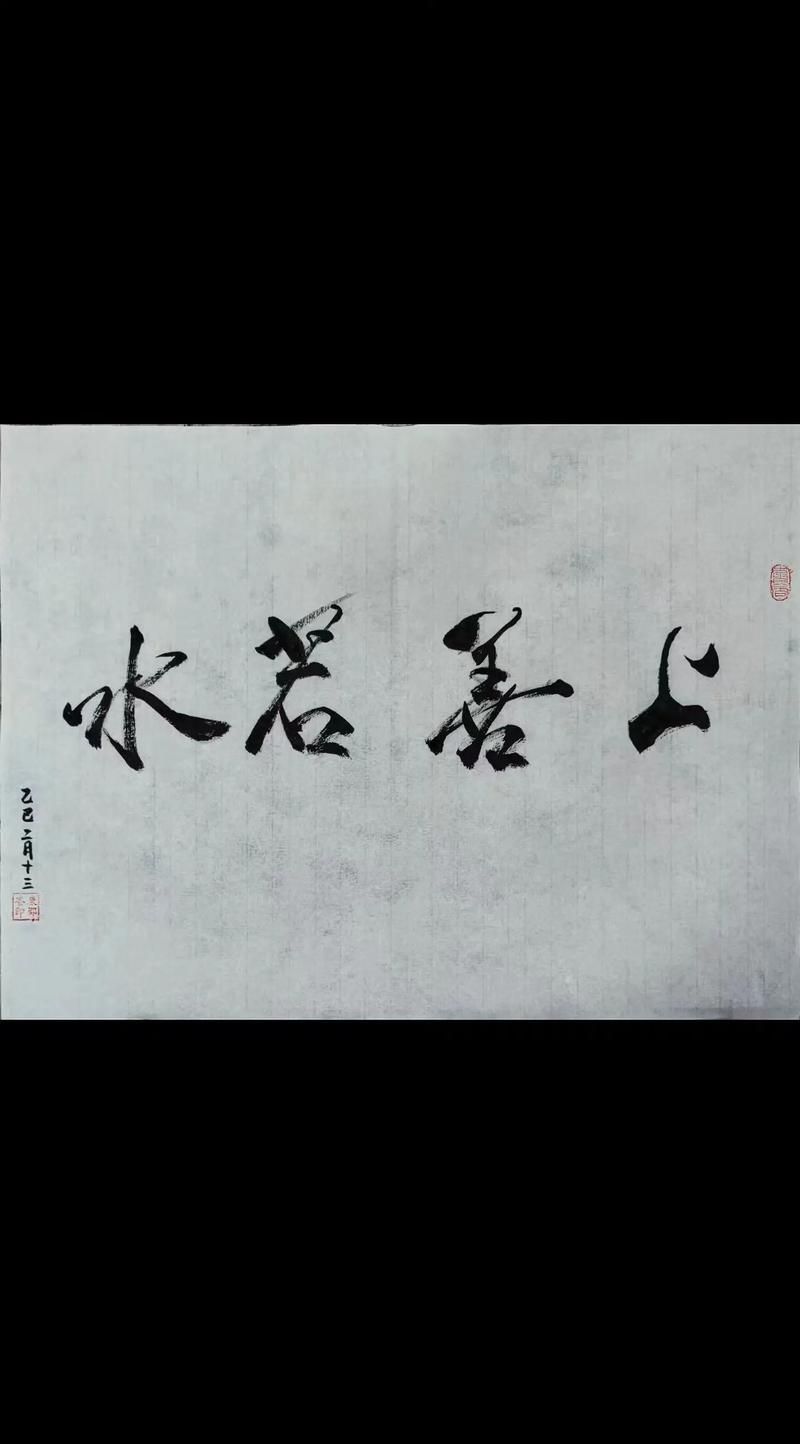 上善若水
乙巳二月十三